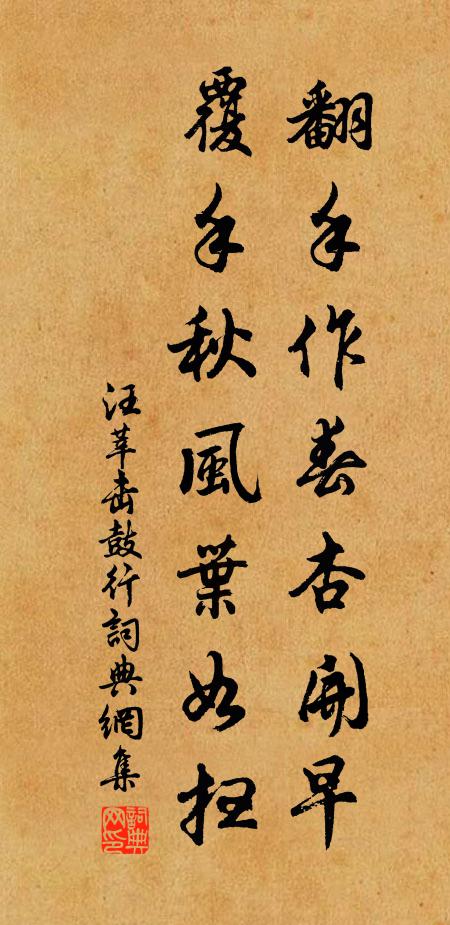 翻手作春杏開早
覆手秋風葉如掃
汪莘擊鼓行詞典網集
詞典網印